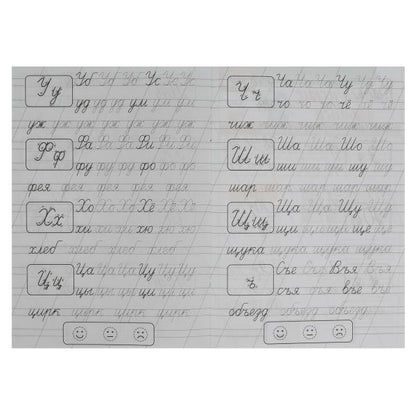 Уу Уб Уб Уб Ус Ус Ус
уд уд уд ум ум ум
уж уж уж уж уж уж уж
Фф Фа Фа Фа Фи Фи Фи
фу фу фу фо фо фо
фея фея фея фея фея
Хх Хо Хо Хо Хе Хе Хе
хи хи хи хю хю хю
хлеб хлеб хлеб хлеб
Цц Ца Ца Ца Цу Цу Цу
цы цы цы ци ци ци
цирк цирк цирк цирк
Чч Ча Ча Ча Чу Чу Чу
чо чо чо чё чё чё
чиж чиж чиж чиж чиж
Шш Ша Ша Шо Шо
ши ши ши шу шу шу
шар шар шар шар шар
Щщ Ща Ща Щу Щу
щи щи щи ще ще ще
щука щука щука щука
ъ Съе Съе Въя Въя
съя съя въе въе
объезд объезд объезд